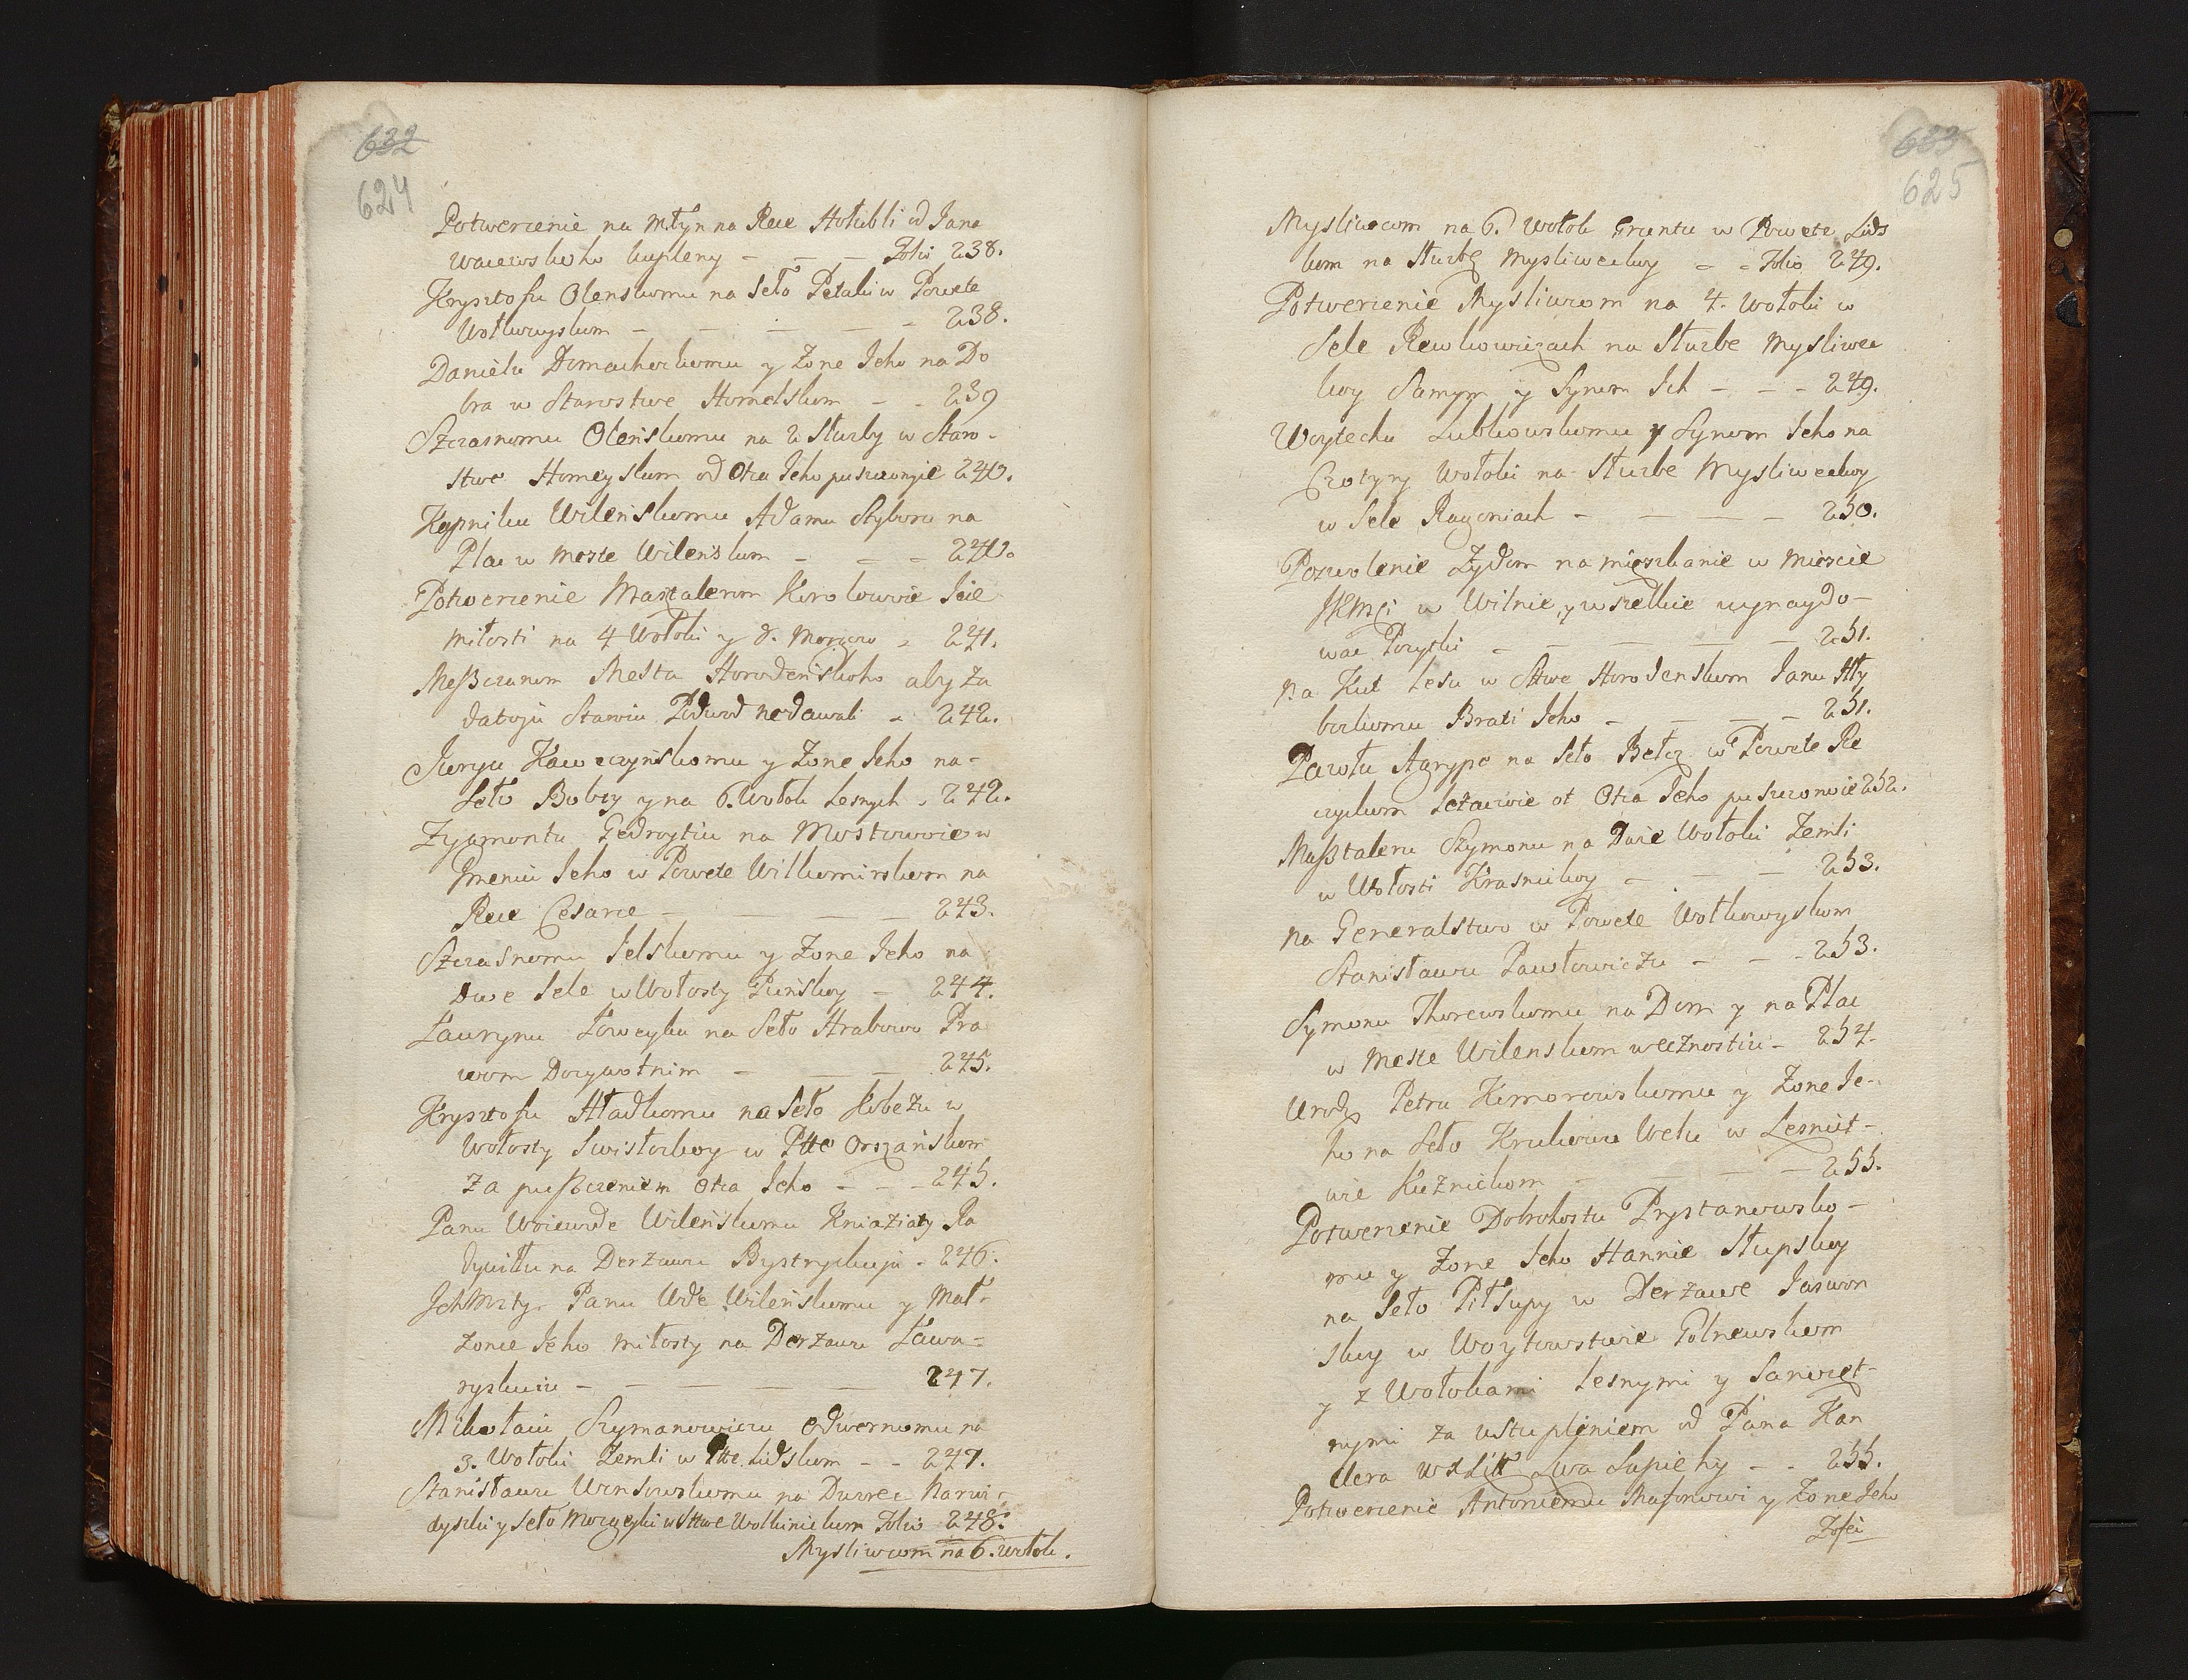 632
624
Potwerzenie na młyn na Rece Hołubli od Jana
Wacewskoho kupleny - - - Folio 238.
Krysztofu Olenskomu na Seło Petaki w Powete
Wołkowyskom - - - - - 238.
Danielu Domachockomu y Zone Jeho na Do
bra w Starostwe Homelskom - - 239
Szczasnomu Olenskomu na 2 Służby w Staro-
stwe Homeyskom od Otca Jeho puszczonyie 240.
Kopniku Wilenskomu Adamu Styboru na
Plac w Meste Wilenskom - - - 240.
Potwerzenie Masztalerom Korolowoie Jeie
miłosti na 4 Wołoki y 8. Morgow - 241.
Meszczanom Mesta Horodeńskoho aby za
datoju Stawiu Podwod nedawali - 242.
Juryu Kaweczyńskomu y Zone Jeho na-
Seło Bobry y na 6. Wołok Lesnych - 242.
Zygmontu Gedroytiu na Mostowoie w
Jmeniu Jeho w Powete Wilkomirskom na
Rece Cesarce - - - - 243.
Szczasnomu Jelskomu y Zone Jeho na
Dwe Sele w Wołosty Pinskoy - 244.
Ławrynu Łoweyku na Seło Hrabowo Pra
wom Dozywotnim - - - 245.
Krysztofu Hładkomu na Seło Kobezu w
Wołosty Swisłockoy w Ptte Orszańskom
za puszczeniem Otca Jeho - - - 245.
Panu Woiewode Wilenskomu Kniaziaty Ra
dywiłu na Derzawu Bystryckuju - 246.
JchMsty. Panu Wde Wilenskomu y Mał-
zonce Jeho miłosty na Derzawu Ława-
ryskuiu - - - - - 247.
Mikołaiu Szymanowiczu Odwernomu na
3. Wołoki Zemli w Ptte. Lidskom - - 247.
Stanisławu Wonsowskomu na Dworec Narwi-
dyszki y Seło Morgeyki w Sttwe Wolkinickom Folio 248.
Mysliwcom na 6. Wołok.
633
625
Mysliwcom na 6. Wołok Gruntu w Powete Lids
kom na Służbę Mysliweckoy - - Folio 249.
Potwerzenie Mysliwcom na 4. Wołoki w
Sele Rewkowiczach na Służbe Mysliwec
koy Samym y Synom Jch - - - 249.
Woytechu Lubkowskomu y Synom Jeho na
Czotyry Wołoki na Służbe Mysliweckoy
w Sele Rayoniach - - - - 250.
Pozwolenie Zydom na mięszkanie w Mieście
JKMCi w Wilnie, y wszelkie wynaydo-
wac Pozytki - - - - - 251.
Na Kut Lesu w Sttwe Horodenskom Janu Hły
bockomu Brati Jeho - - - - 251.
Pawłu Agrypo na Seło Bełcz w Powete Re
czyckom Lezaczoie ot Otca Jeho puszczonoie 252.
Masztaleru Szymonu na Dwie Wołoki Zemli
w Wołosti Krasnickoy - - - 253.
na Generalstwo w Powete Wołkowyskom
Stanisławu Pawłowiczu - - - 253.
Symonu Thorewskomu na Dom y na Plac
w Meste Wilenskom w wecznostiu - 254.
Urodz. Petru Komorowskomu y Zone Je-
ho na Seło Krukowu Weku w Lesnict-
wie Kuznickom - - - 255.
Potwerzenie Dobrohostu Prystanowsko-
mu y Zone Jeho Hannie Słupskoy
na Seło Piłsupy w Derzawe Jaswon
skoy w Woytowstwie Polnewskom
y z Wołokami Lesnymi y Sanozęt-
nymi za ustupleniem od Pana Kan
clera WXLitt Lwa Sapiehy - - 255.
Potwerzenie Antoniemu Mafonowi y Zone Jeho
Zofei